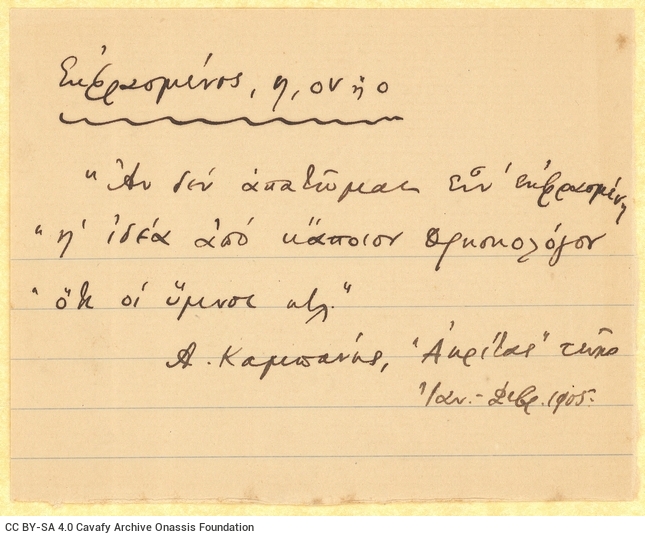 Εκφρασμένος, η, ον ή ο
"Αν δεν απατώμαι είν' εκφρασμένη
"η ιδέα από κάποιον θρησκολόγον
"ότι οι ύμνοι κτλ."
Α. Καμπάνης, "Ακρίτας"
Ιαν.-Φεβρ. 1905.
CC BY-SA 4.0 Cavafy Archive Onassis Foundation